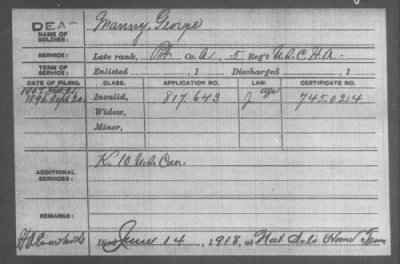 DEAD
NAME OF SOLDIER:
Manny, George
SERVICE:
Late rank, Pvt Co. A, 5 Reg't U.S.C.H.A.
TERM OF SERVICE:
Enlisted , 1 Discharged , 1
DATE OF FILING. CLASS. APPLICATION NO. LAW. CERTIFICATE NO.
Invalid, 817.643 J age 745.024
1896 Sept 20
Widow,
Minor,
K. 10 U.S. Cav.
ADDITIONAL SERVICES:
REMARKS:
Died June 14, 1918, at Nat Sol's Home Tenn